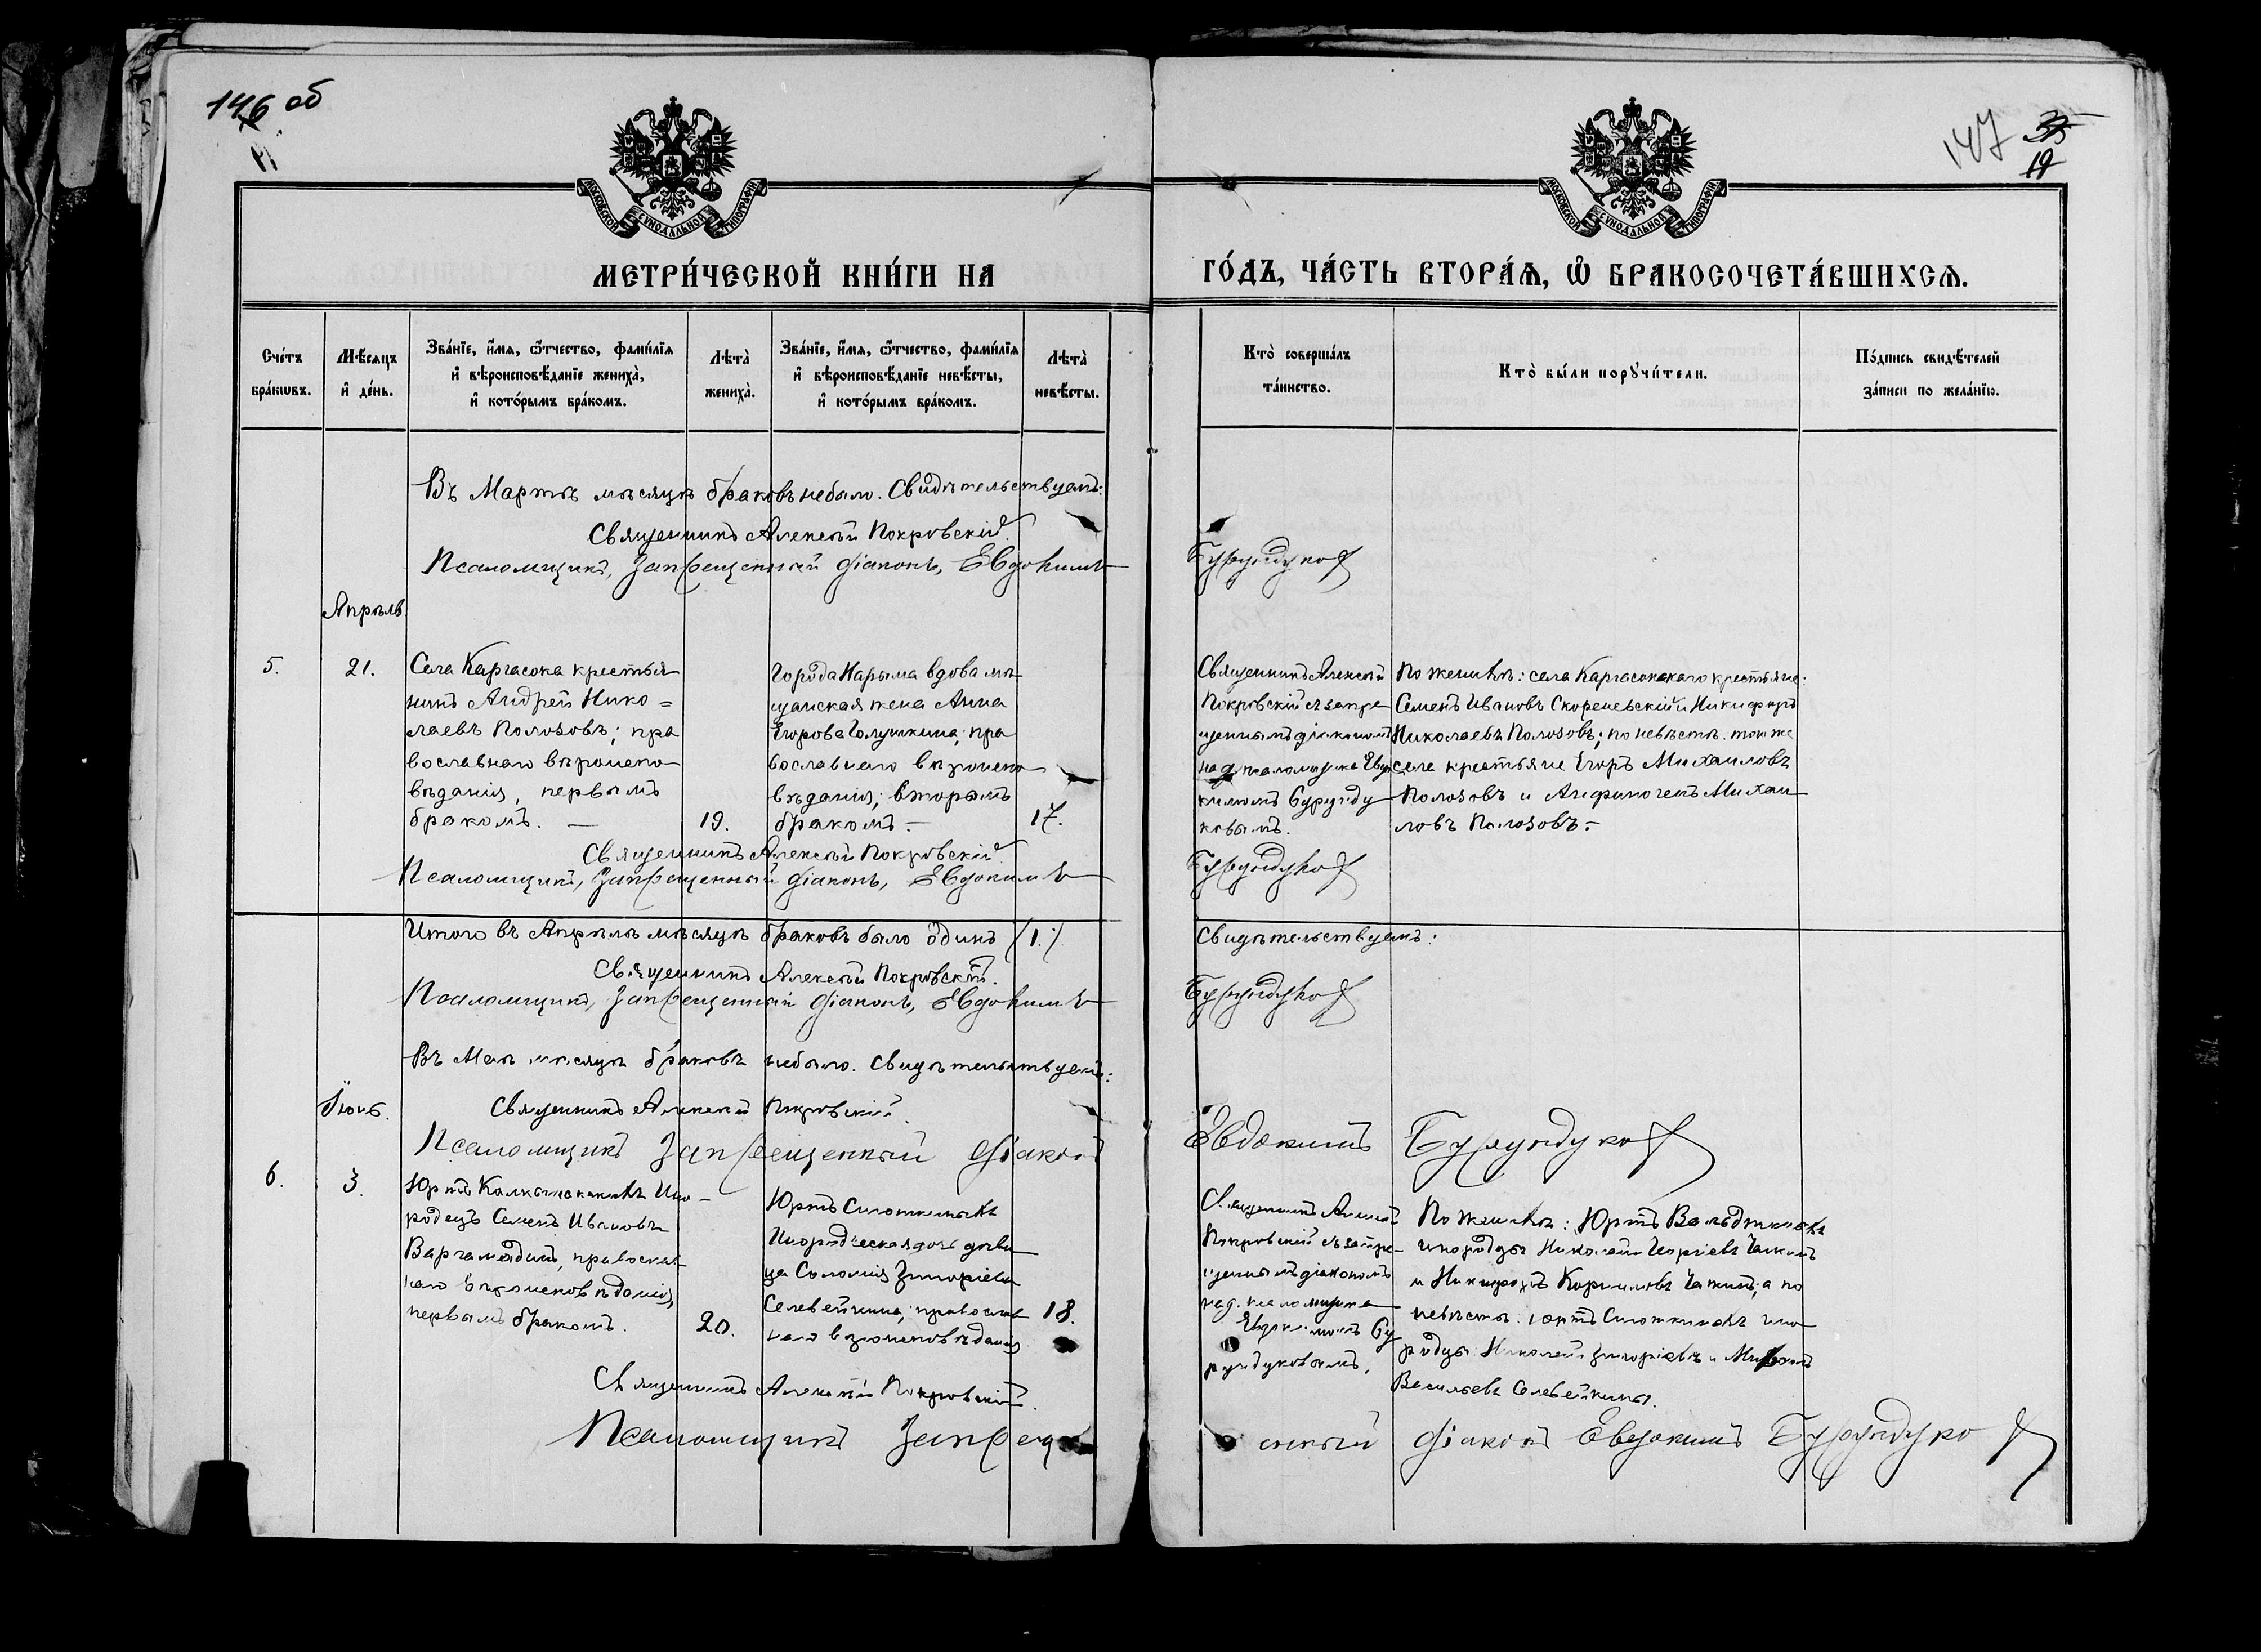 146 об
147
19
МОСКОВСКОЙ СѴНОДАЛЬНОЙ ТИПОГРАФІИ
МОСКОВСКОЙ СѴНОДАЛЬНОЙ ТИПОГРАФІИ
МЕТРИ́ЧЕСКОЙ КНИ́ГИ НА
ГО́ДЪ, ЧА́СТЬ ВТОРА́Ѧ, Ѡ҆ БРАКОСОЧЕТА́ВШИХСѦ.
Сче́тъ
бра́ковъ.
Мѣ́сяцъ
и҆ де́нь.
Зва́нїе, и҆́мѧ, ѻ҆́тчество, фами́лїѧ
и҆ вѣроисповѣ́данїе жениха̀,
и҆ кото́рымъ бра́комъ.
Лѣта̀
жениха̀.
Зва́нїе, и҆́мѧ, ѻ҆́тчество, фами́лїѧ
и҆ вѣроисповѣ́данїе невѣ́сты,
и҆ кото́рымъ бра́комъ.
Лѣта̀
невѣ́сты.
Кто̀ соверша́лъ
та́инство.
Кто̀ бы́ли порꙋчи́тели.
По́дпись свидѣ́телей
за́писи по жела́нїю.
Въ Мартѣ мѣсяцѣ браковъ небыло. Свидѣтельствуемъ:
Священникъ Алексѣй Покровскій.
Псаломщикъ, Запрещенный діаконъ, Евдокимъ
Бурундуковъ
Апрѣль
5.
21.
Села Каргасока крестья-
нинъ Андрей Нико=
лаевъ Полозовъ; пра
вославнаго вѣроиспо-
вѣданія, первымъ
бракомъ. —
19.
Города Нарыма вдова мѣ-
щанская жена Анна
Егорова Голушкина; пра
вославнаго вѣроиспо-
вѣданія; вторымъ
бракомъ.—
17.
Священникъ Алексѣй
Покровскій съ запре-
щеннымъ діакономъ
на д. псаломщика Евдо
кимомъ Бурунду-
ковымъ.
По женихѣ: села Каргасокскаго крестьяне:
Семенъ Ивановъ Скореневскій и Никифоръ
Николаевъ Полозовъ; по невѣстѣ. тои же
села крестьяне Егоръ Михаиловъ
Полозовъ и Михаи-
ловъ Полозовъ.—
Священникъ Алексѣй Покровскій.
Псаломщикъ, Запрещенный діаконъ, Евдокимъ
Бурундуковъ
Итого въ Апрѣлѣ мѣсяцѣ браковъ было одинъ /1./
Свидѣтельствуемъ:
Священникъ Алексѣй Покровскій.
Псаломщикъ, Запрещенный діаконъ, Евдокимъ
Бурундуковъ
Въ Маѣ мѣсяцѣ браковъ небыло. Свидѣтельствуемъ:
Іюнь.
Священникъ Алексѣй Покровскій.
Псаломщикъ Запрещенный діаконъ
Евдокимъ Бурундуковъ
6.
3.
Юртъ Ино-
родецъ Семенъ Ивановъ
православ-
наго вѣроисповѣданія,
первымъ бракомъ.
20.
Юртъ
Инородческая дочь дѣви-
ца Соломія Григоріева
Селевейкина; православ-
наго вѣроисповѣданія
18.
Священникъ Алексѣй
Покровскій съ запре-
щеннымъ діакономъ
на д. псаломщика
Евдокимомъ Бу
рундуковымъ,
По женихѣ: Юртъ
инородцы Николай Георгіевъ
и Корниловъ а по
невѣстѣ: юртъ ино-
родцы: Николай Григоріевъ и Михаилъ
Васильевъ Селевейкины.
Священникъ Алексѣй Покровскій.
Псаломщикъ Запрещ
енный діаконъ Евдокимъ Бурундуковъ